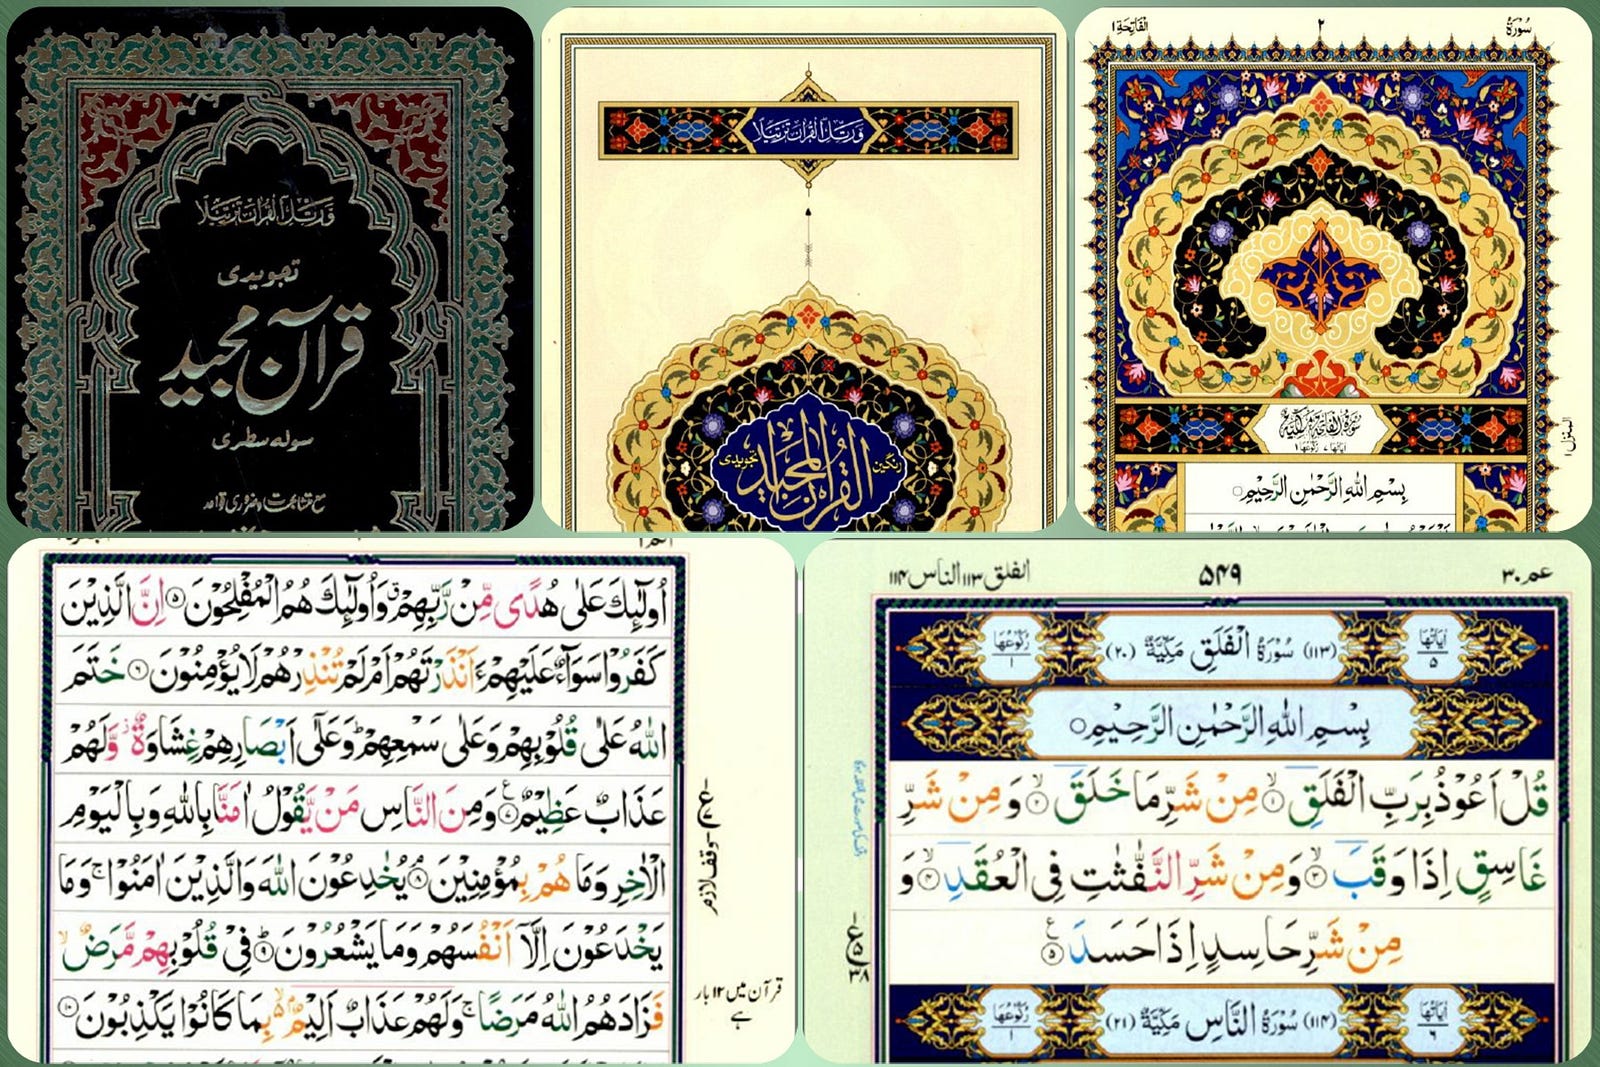 وَرَتِّلِ الْقُرْاٰنَ تَرْتِيْلًا
تجویدی
قرآن مجید
سولہ سطری
وَرَتِّلِ الْقُرْاٰنَ تَرْتِيْلًا
رنگین القرآن المجید تجویدی
سُوْرَةُ ٢ اَلْفَاتِحَة ١
سُوْرَةُ الْفَاتِحَةِ مَكِّيَّةٌ
اٰيَاتُهَا ٧ رُكُوْعُهَا ١
بِسْمِ اللّٰهِ الرَّحْمٰنِ الرَّحِيْمِ
اُولٰٓئِكَ عَلٰى هُدًى مِّنْ رَّبِّهِمْ ۗ وَاُولٰٓئِكَ هُمُ الْمُفْلِحُوْنَ ۝٥ اِنَّ الَّذِيْنَ
كَفَرُوْا سَوَآءٌ عَلَيْهِمْ ءَاَنْذَرْتَهُمْ اَمْ لَمْ تُنْذِرْهُمْ لَا يُؤْمِنُوْنَ ۝٦ خَتَمَ
اللّٰهُ عَلٰى قُلُوْبِهِمْ وَعَلٰى سَمْعِهِمْ ؕ وَعَلٰٓى اَبْصَارِهِمْ غِشَاوَةٌ ؗ وَّلَهُمْ
عَذَابٌ عَظِيْمٌ ۝٧ وَمِنَ النَّاسِ مَنْ يَّقُوْلُ اٰمَنَّا بِاللّٰهِ وَبِالْيَوْمِ
الْاٰخِرِ وَمَا هُمْ بِمُؤْمِنِيْنَ ۝٨ يُخٰدِعُوْنَ اللّٰهَ وَالَّذِيْنَ اٰمَنُوْا ۚ وَمَا
يَخْدَعُوْنَ اِلَّآ اَنْفُسَهُمْ وَمَا يَشْعُرُوْنَ ۝٩ فِيْ قُلُوْبِهِمْ مَّرَضٌ ۙ
فَزَادَهُمُ اللّٰهُ مَرَضًا ۚ وَلَهُمْ عَذَابٌ اَلِيْمٌ ۢ ۙ بِمَا كَانُوْا يَكْذِبُوْنَ ۝١٠
وقف لازم
قرآن میں ۱۲ بار
ہے
عم ۳۰ ۵۴۹ الفلق ۱۱۳ الناس ۱۱۴
اٰيَاتُهَا ٥ (١١٣) سُوْرَةُ الْفَلَقِ مَكِّيَّةٌ (٢٠) رُكُوْعُهَا ١
بِسْمِ اللّٰهِ الرَّحْمٰنِ الرَّحِيْمِ
قُلْ اَعُوْذُ بِرَبِّ الْفَلَقِ ۝١ مِنْ شَرِّ مَا خَلَقَ ۝٢ وَمِنْ شَرِّ
غَاسِقٍ اِذَا وَقَبَ ۝٣ وَمِنْ شَرِّ النَّفّٰثٰتِ فِي الْعُقَدِ ۝٤ وَ
مِنْ شَرِّ حَاسِدٍ اِذَا حَسَدَ ۝٥
اٰيَاتُهَا ٦ (١١٤) سُوْرَةُ النَّاسِ مَكِّيَّةٌ (٢١) رُكُوْعُهَا ١